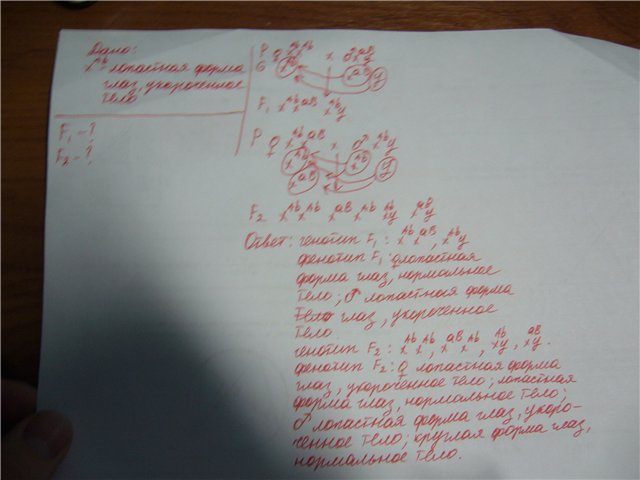 Дано:
X^Ab - лопастная форма
глаз, укороченное
тело
F₁ - ?
F₂ - ?
P ♀ X^Ab X^Ab x ♂ X^aB y
G X^Ab X^aB y
F₁ X^Ab X^aB X^Ab y
P ♀ X^Ab X^aB x ♂ X^Ab y
X^Ab X^Ab y
X^aB
F₂ X^Ab X^Ab X^aB X^Ab X^Ab y X^aB y
Ответ: генотип F₁: X^Ab X^aB, X^Ab y
фенотип F₁: ♀лопастная
форма глаз, нормальное
тело; ♂ лопастная форма
глаз, укороченное
тело.
генотип F₂: X^Ab X^Ab, X^aB X^Ab, X^Ab y, X^aB y.
фенотип F₂: ♀ лопастная форма
глаз, укороченное тело; лопастная
форма глаз, нормальное тело;
♂ лопастная форма глаз, укоро-
ченное тело; круглая форма глаз,
нормальное тело.